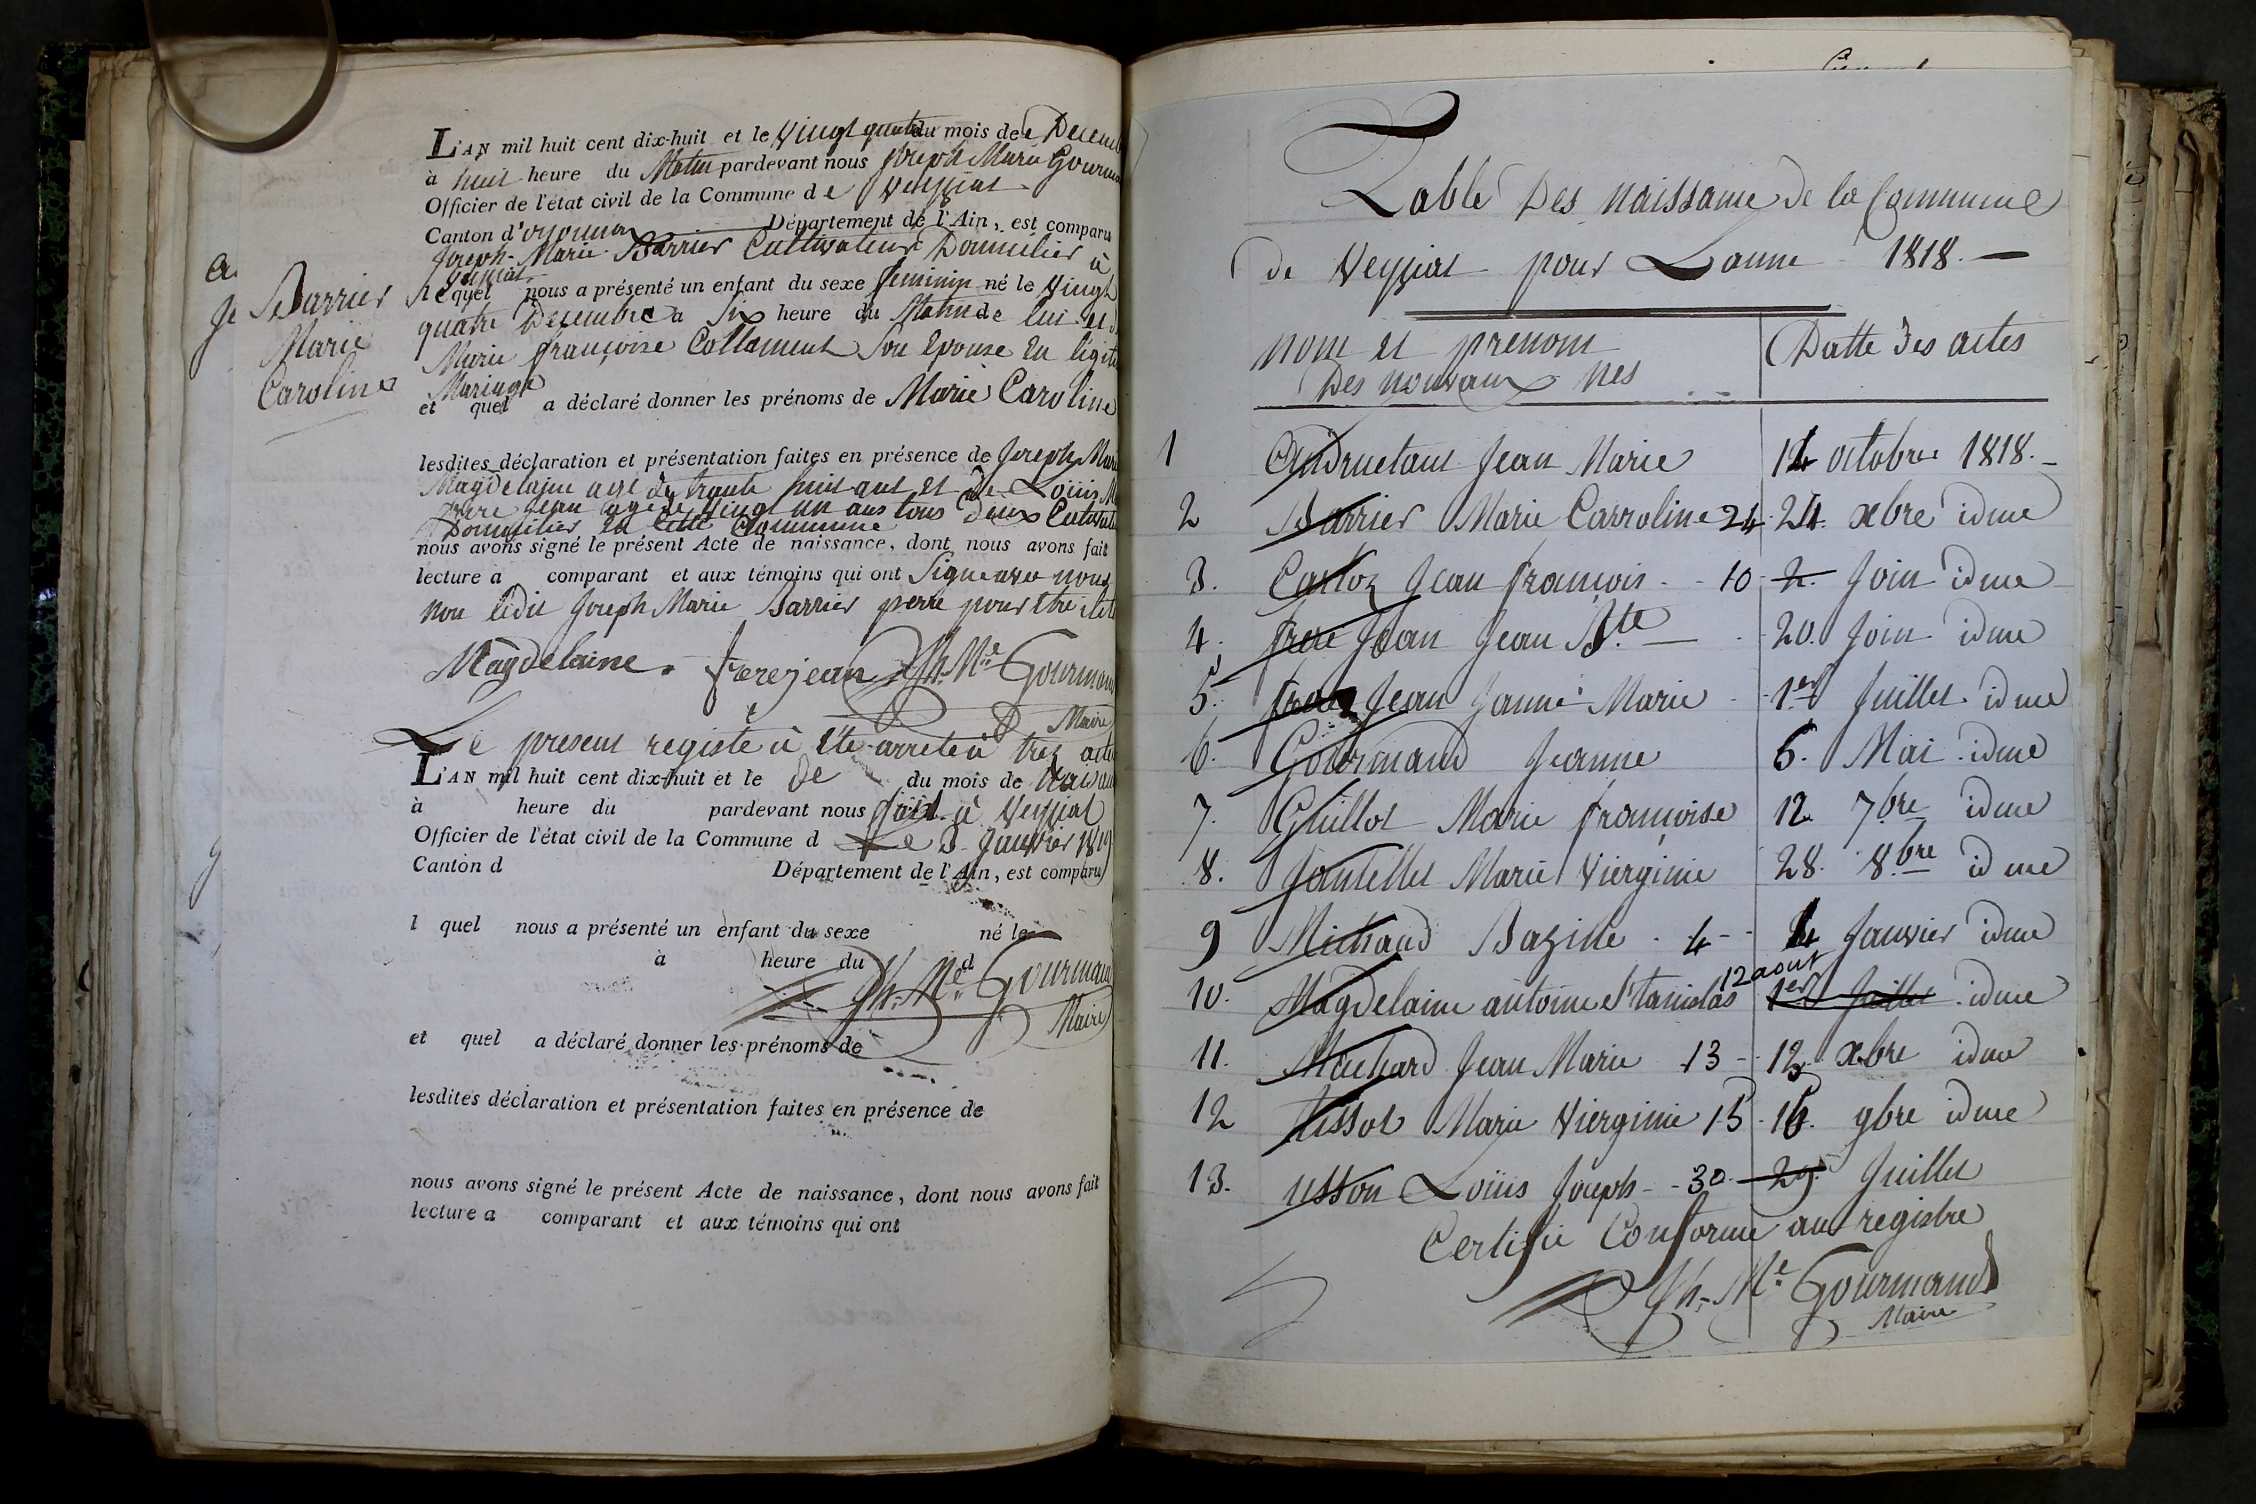 L'AN mil huit cent dix-huit et le vingt quatre du mois de Decemb
à huit heure du Matin pardevant nous Joseph Marie Gourma
Officier de l'état civil de la Commune de Veyziat
Canton d'oyonnax Département de l'Ain, est comparu
Joseph-Marie Barrier Cultivateur Domicilier à
Veyziat
lequel nous a présenté un enfant du sexe feminin né le Vingt
quatre Decembre à Six heure du Matin de lui et d
Marie françoise Collement Son Epouse En ligit
Mariage
et quel a déclaré donner les prénoms de Marie Caroline
Barrier
Marie
Caroline
lesdites déclaration et présentation faites en présence de Joseph Mari
Magdelaine agé de trante huit ans et de Loüis M
frere Jean agé de Vingt un ans tous Deux Cultivat
Domicilier En cette Commune
nous avons signé le présent Acte de naissance, dont nous avons fait
lecture a comparant et aux témoins qui ont Signe avec nous
non ledit Joseph Marie Barrier perre pour etre ilite
Magdelaine. frerejean Jh. Mie Gourmand
Maire
Le present registe à Ete arreté à trez acte
L'AN mil huit cent dix-huit et le de du mois de Naissan
à heure du pardevant nous fait à Veyziat
Officier de l'état civil de la Commune d Le 3 Janvier 1819
Canton d Département de l'Ain, est comparu
l quel nous a présenté un enfant du sexe né le
à heure du d
Jh. Mie Gourmand
Maire
et quel a déclaré donner les prénoms de
lesdites déclaration et présentation faites en présence de
nous avons signé le présent Acte de naissance, dont nous avons fait
lecture a comparant et aux témoins qui ont
Table Des Naissance de la Commune
de Veyziat pour Lanne 1818.
nom et prenom Datte Des actes
Des nouvaux Nes
1 Andruetant Jean Marie 14 octobre 1818.
2 Barrier Marie Carroline 24 24. xbre idme
3. Carloz Jean francois 10 2. Join idme
4. frere Jean Jean Bte 20. Join idme
5. frere Jean Janne Marie 1er Juillet idme
6. Gourmand Jeanne 6. Mai idme
7. Guillot Marie françoise 12 7bre idme
8. Jantellet Marie Vierginie 28. 8.bre idme
9 Michaud Bazille 4 4 Janvier idme
12 aout
10. Magdelaine antoine Stanislas 1er Juillet idme
11. Machard Jean Marie 13 12 xbre idme
12 tissot Marie Vierginie 15 16. 9bre idme
13. usson Loüis Joseph 30 29. Juillet
Certifie Conforme au registre
Jh. Mie Gourmand
Maire